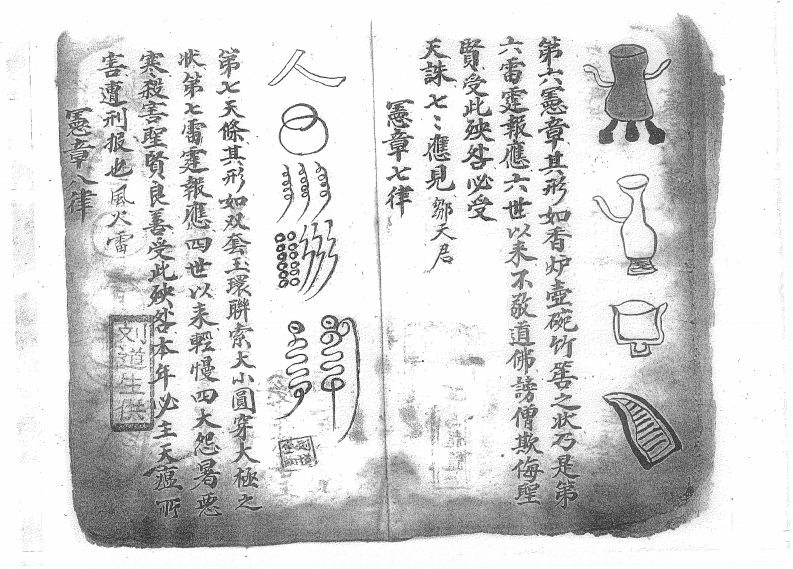 第六憲章其形如香炉壺碗竹善之状乃是第
六雷霆報應六世以来不敬道佛謗僧欺侮聖
賢受此殃咎必受
天誅七〻應見鄒天君
憲章七律
第七天條其形如双套玉環聯索大小圓穿大極之
状第七雷霆報應四世以来輕慢四大怨暑悪
寒殺害聖賢良善受此殃咎本年必主天瘟所
害遭刑报也風火雷
憲章八律
刘道生供